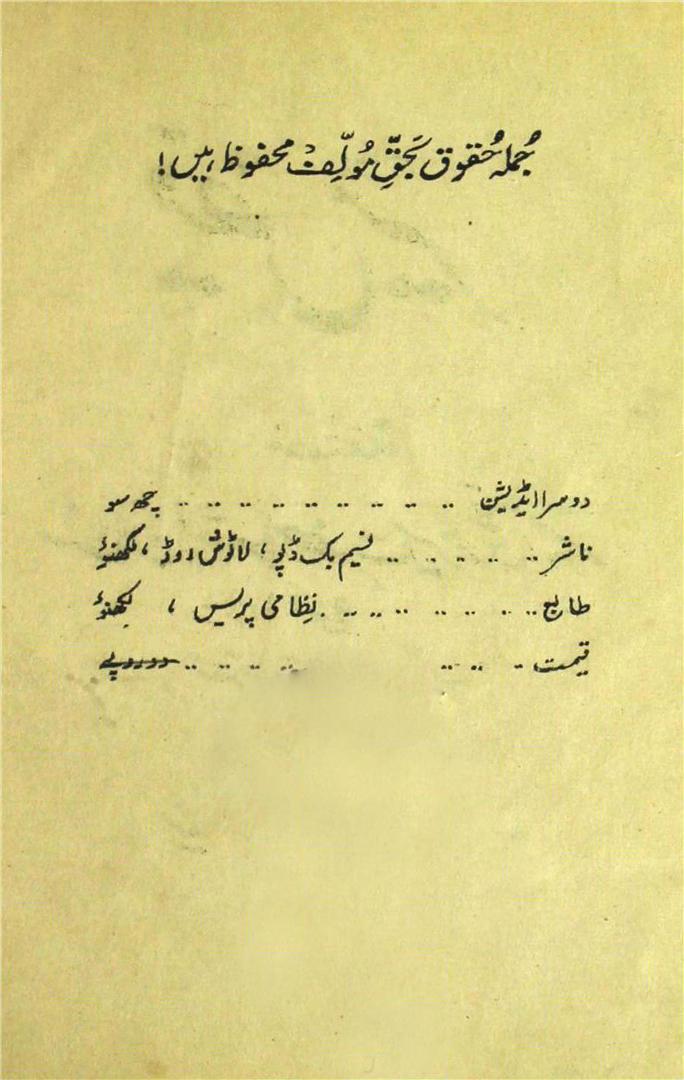 جُملہ حُقوق بَحَقِّ مُولِّف محفوظ ہیں!
دوسرا ایڈیشن .. .. .. .. .. .. .. .. .. .. چھ سو
ناشر .. .. .. .. .. .. نسیم بک ڈپو، لاٹوش روڈ، لکھنؤ
طابع .. .. .. .. .. .. .. نظامی پریس، لکھنؤ
قیمت .. .. .. .. .. .. .. دو روپے